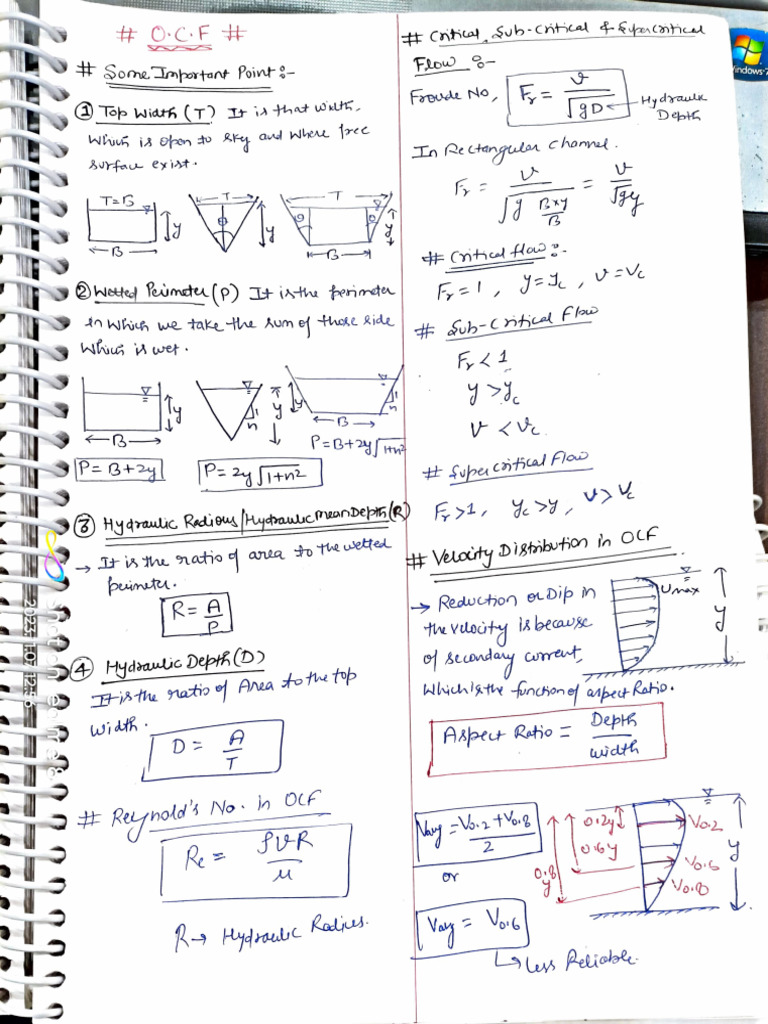 # O.C.F #
# Some Important Point :-
① Top Width (T) It is that width,
which is open to sky and where free
surface exist.
T=B
T
T
y
θ
y
θ
θ
y
B
B
② Wetted Perimeter (P) It is the perimeter
in which we take the sum of those side
which is wet.
y
1
n
y
y
1
n
B
B
P = B+2y√1+n²
P = B+2y
P = 2y√1+n²
③ Hydraulic Radious/Hydraulic mean Depth (R)
→ It is the ratio of area to the wetted
perimeter.
R = A/P
④ Hydraulic Depth (D)
It is the ratio of Area to the top
width.
D = A/T
# Reynold's No. in OCF
Re = ρVR/μ
R → Hydraulic Radius.
# Critical, Sub-Critical & Supercritical
Flow :-
Froude No, Fr = v/√gD ← Hydraulic Depth
In Rectangular channel.
Fr = v/√(g B×y/B) = v/√gy
# Critical flow :-
Fr = 1, y = yc, v = vc
# Sub-Critical Flow
Fr < 1
y > yc
v < vc
# Supercritical Flow
Fr > 1, yc > y, v > vc
# Velocity Distribution in OCF.
→ Reduction or Dip in
the velocity is because
of secondary current,
which is the function of aspect Ratio.
Umax
y
Aspect Ratio = Depth/width
Vavg = V0.2 + V0.8/2
or
Vavg = V0.6
↳ Less Reliable.
0.2y
0.6y
0.8y
V0.2
V0.6
V0.8
y
Windows 7